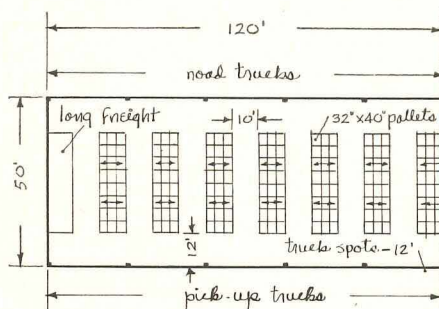 120'
road trucks
long freight
10'
32"x40" pallets
50'
12'
truck spots - 12'
pick-up trucks